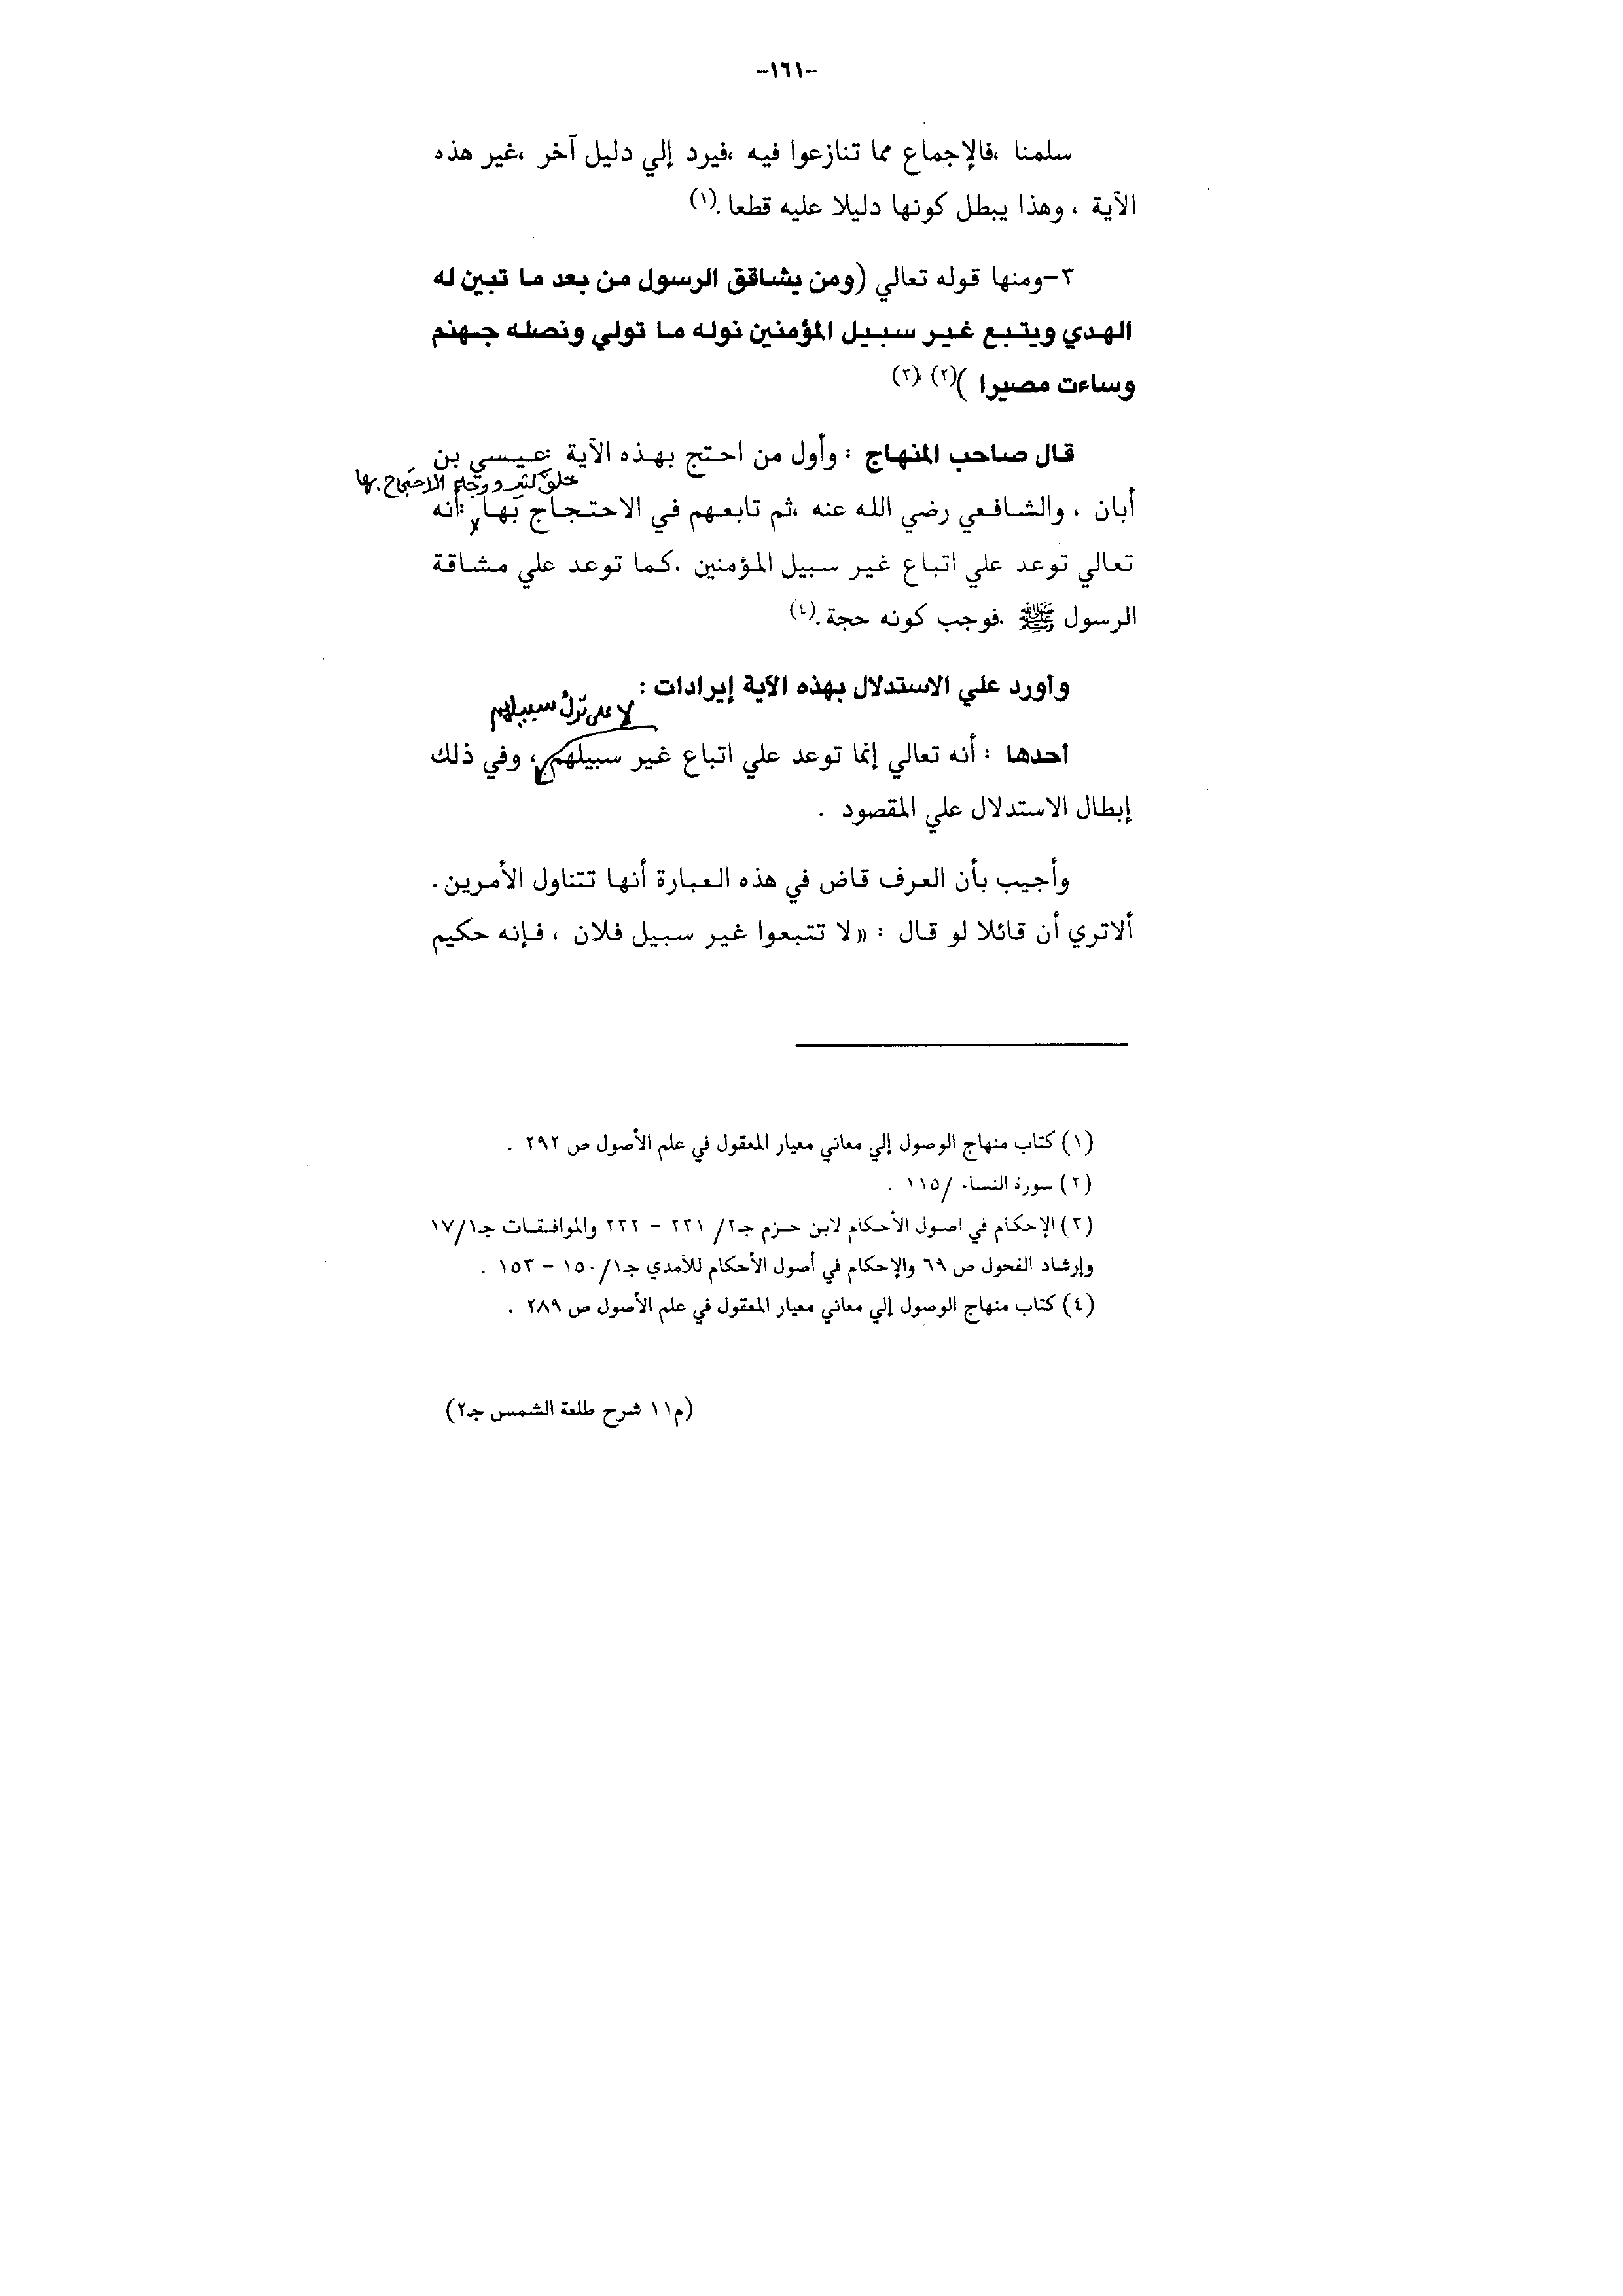 -١٦١-
سلمنا ،فالإجماع مما تنازعوا فيه ،فيرد إلي دليل آخر ،غير هذه
الآية ، وهذا يبطل كونها دليلا عليه قطعا .(١)
٣-ومنها قوله تعالي (ومن يشاقق الرسول من بعد ما تبين له
الهدي ويتبع غير سبيل المؤمنين نوله ما تولي ونصله جهنم
وساءت مصيرا )(٢) ،(٣)
قال صاحب المنهاج : وأول من احتج بهذه الآية :عيسي بن
خلق كثير ووجه الاحتجاج بها
أبان ، والشافعي رضي الله عنه ،ثم تابعهم في الاحتجاج بها :أنه
تعالي توعد علي اتباع غير سبيل المؤمنين ،كما توعد علي مشاقة
الرسول ﷺ ،فوجب كونه حجة .(٤)
وأورد علي الاستدلال بهذه الآية إيرادات :
لا على ترك سبيلهم
أحدها : أنه تعالي إنما توعد علي اتباع غير سبيلهم ، وفي ذلك
إبطال الاستدلال علي المقصود .
وأجيب بأن العرف قاض في هذه العبارة أنها تتناول الأمرين .
ألاتري أن قائلا لو قال : « لا تتبعوا غير سبيل فلان ، فإنه حكيم
(١) كتاب منهاج الوصول إلي معاني معيار المعقول في علم الأصول ص ٢٩٢ .
(٢) سورة النساء /١١٥ .
(٣) الإحكام في اصول الأحكام لابن حزم جـ٢/ ٢٣١ - ٢٣٢ والموافقات جـ١٧/١
وإرشاد الفحول ص ٦٩ والإحكام في أصول الأحكام للآمدي جـ١٥٠/١ - ١٥٣ .
(٤) كتاب منهاج الوصول إلي معاني معيار المعقول في علم الأصول ص ٢٨٩ .
(م١١ شرح طلعة الشمس جـ٢)